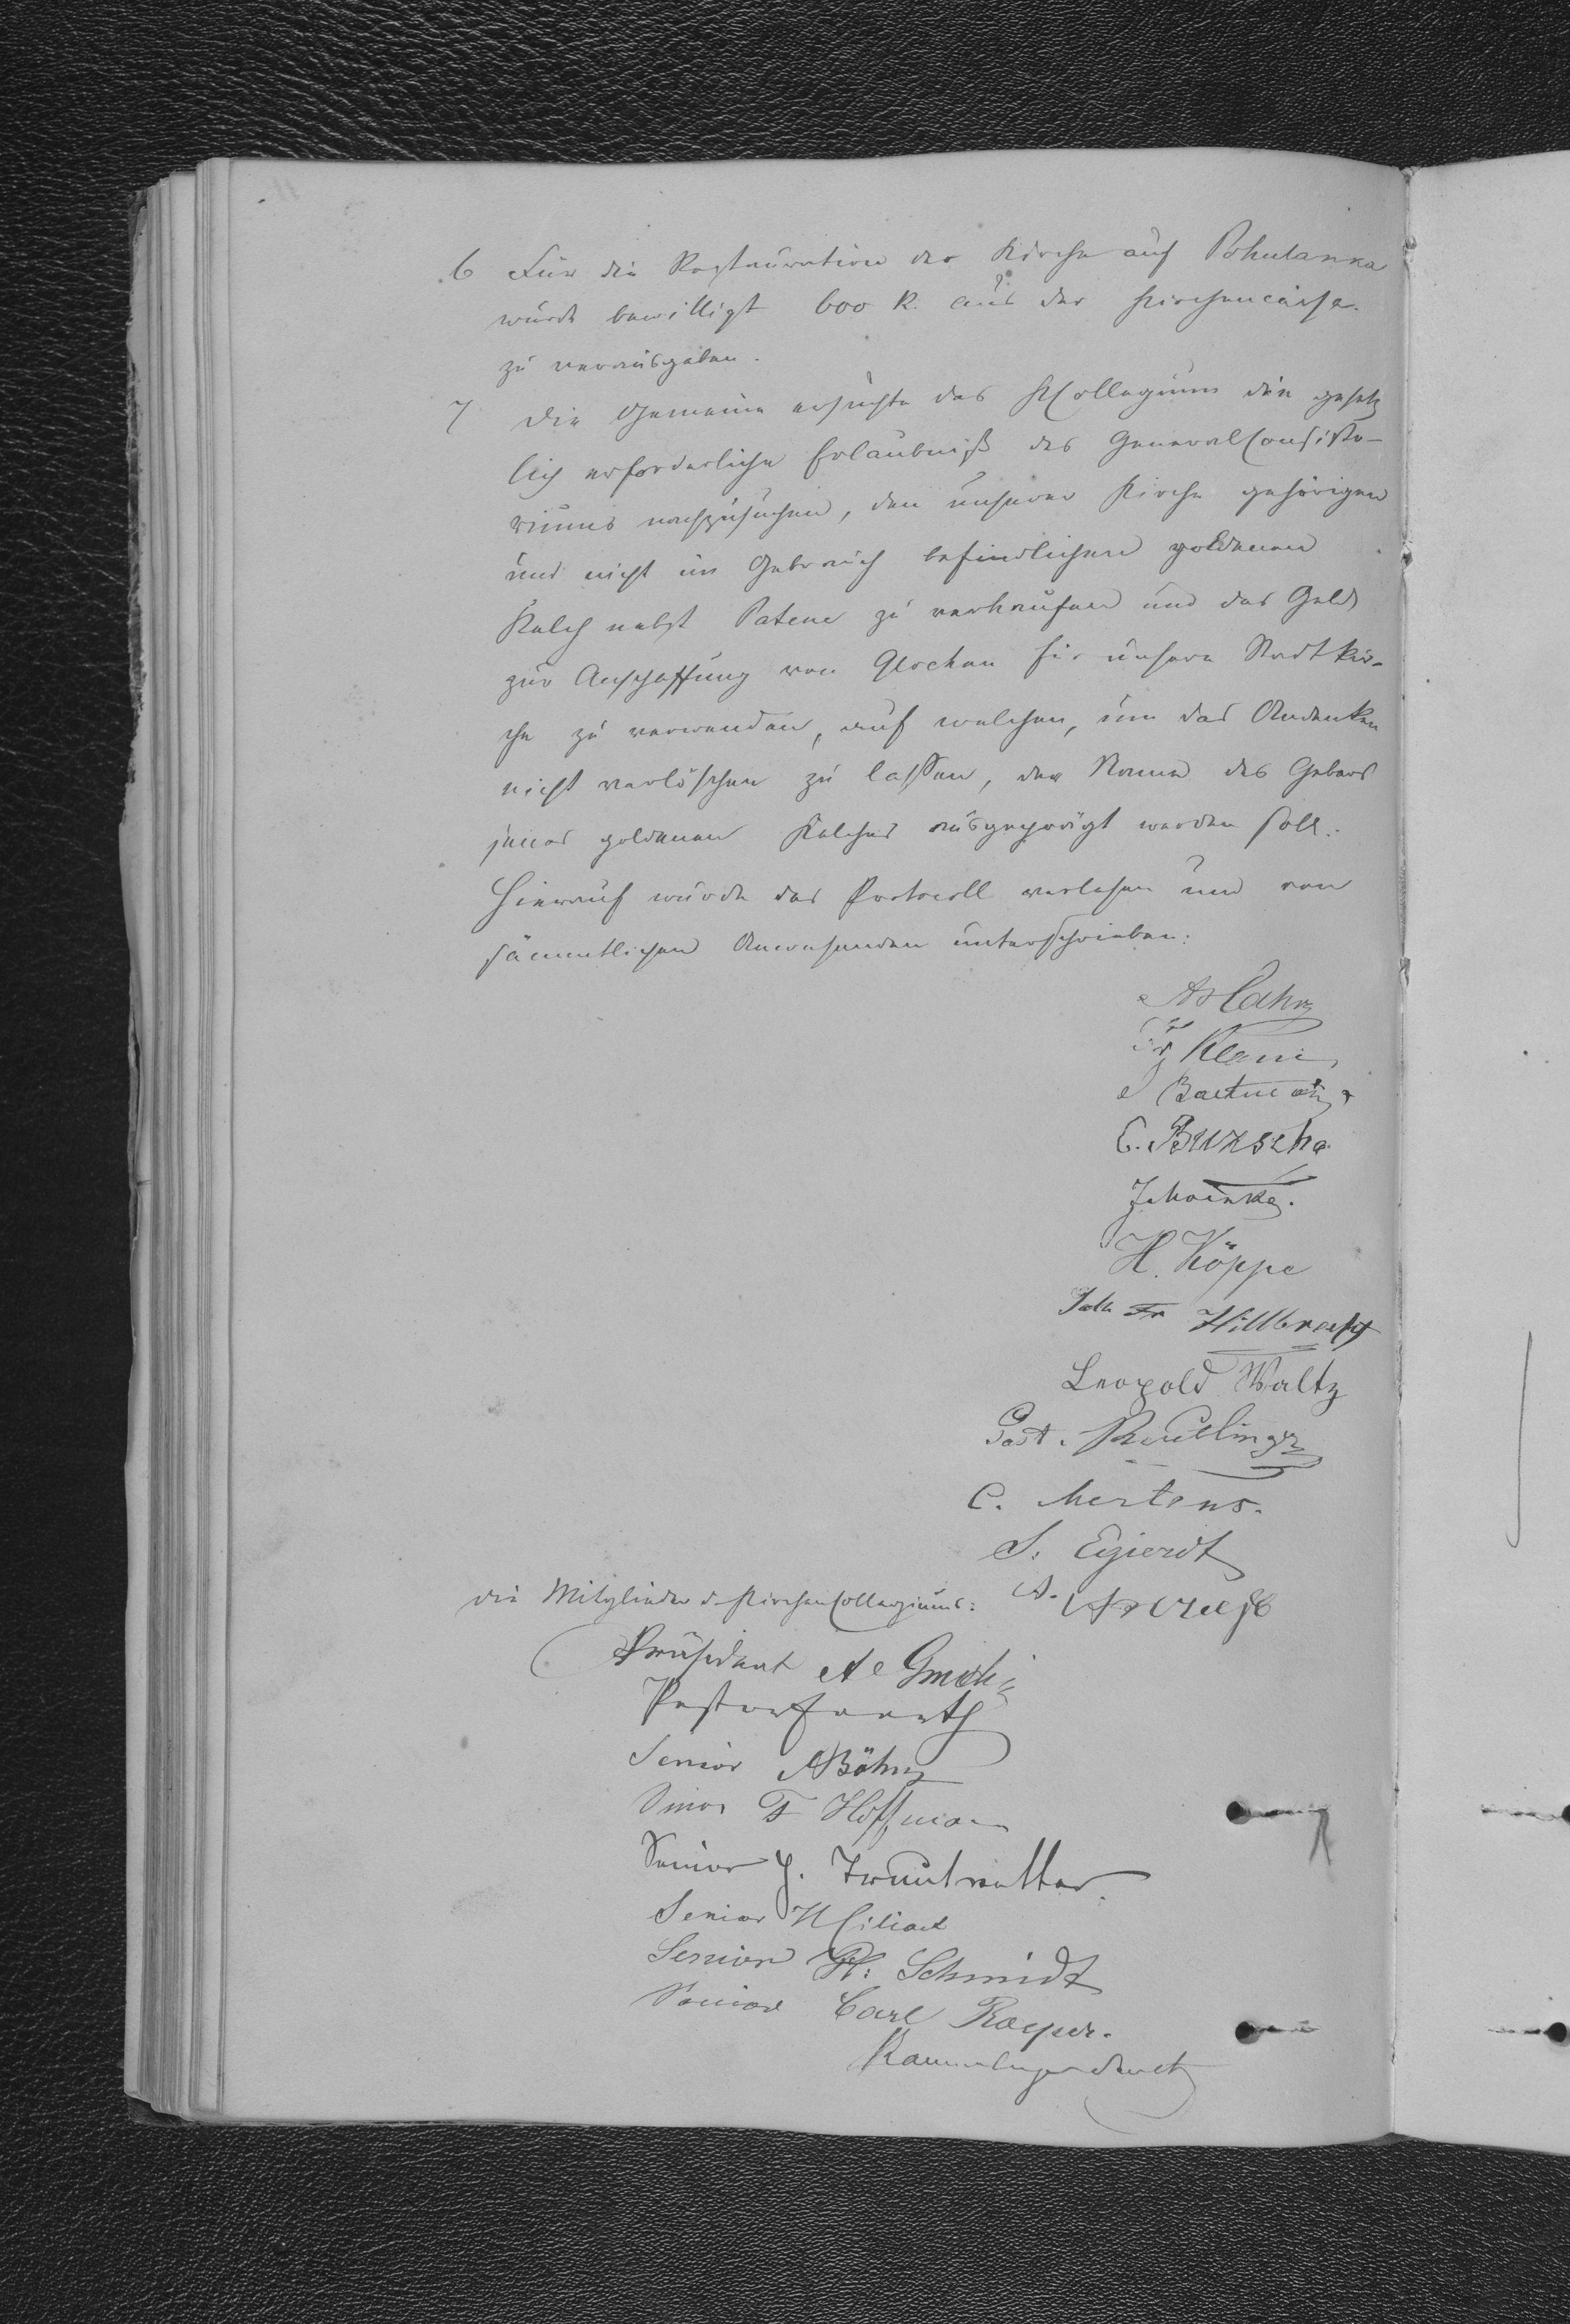 6 Für die Restauration der Kirche auf Pohulanka
wurde bewilligt 600 R. aus der Kirchencasse
zu verausgaben.
7 Die Gemeine ersuchte das KCollegium die gesetz
lich erforderliche Erlaubniß des GeneralConsisto-
riums nachzusuchen, den unserer Kirche gehörigen
und nicht im Gebrauch befindlichen goldenen
Kelch nebst Patene zu verkaufen und das Geld
zur Anschaffung von Glocken für unsere Stadtkir-
che zu verwenden, auf welchen, um das Andenken
nicht verlöschen zu lassen, der Name des Gebers
jenes goldenen Kelches ausgeprägt werden soll.
Hierauf wurde das Protocoll verlesen und von
sämmtlichen Anwesenden unterschrieben:
Fr Klein
C. Buzscha
H. Köppe
Joh Fr Hillbrecht
Leopold Waltz
Gust. Reutlinger
C. Mertens.
S. Egierdt
A.
die Mitglieder d. KirchenCollegiums:
Präsident
Pastor
Senior ABöhm
Senior F Hoffmann
Senior J. Trautvetter.
Senior H Ciliax
Senior Ph: Schmidt
Senior Carl Roeper.